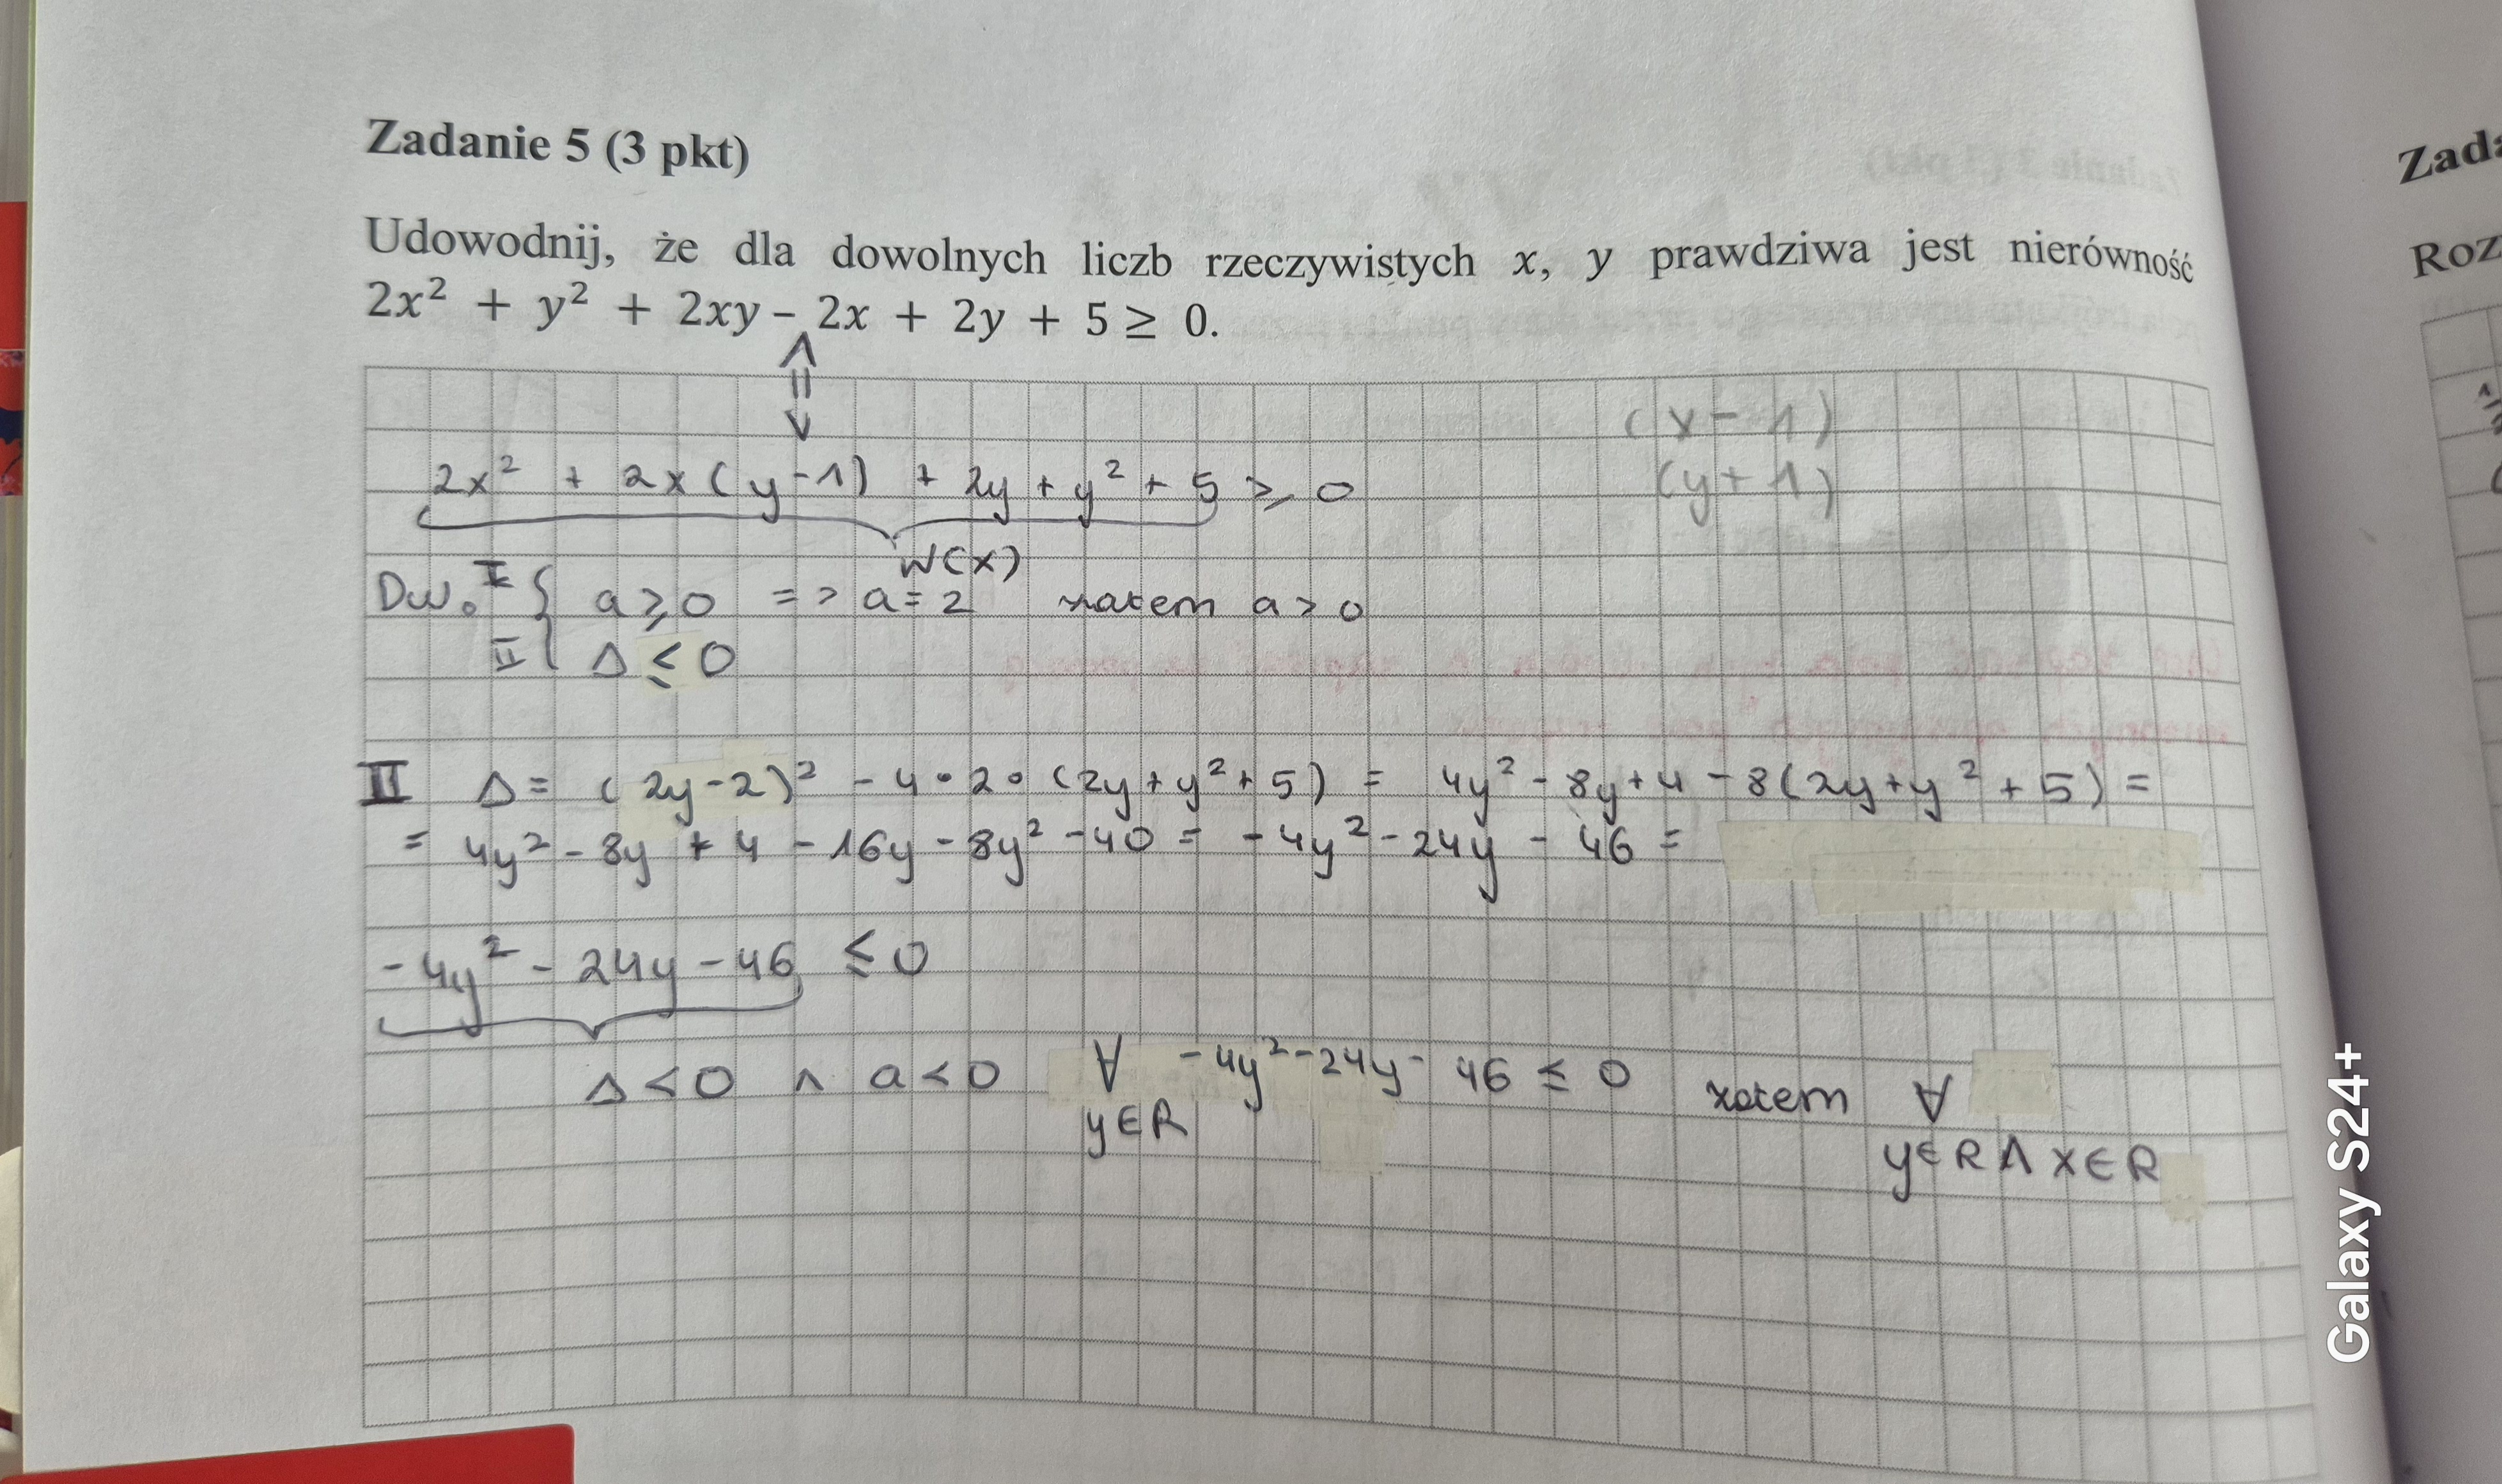 Zadanie 5 (3 pkt)
Udowodnij, że dla dowolnych liczb rzeczywistych x, y prawdziwa jest nierówność
2x² + y² + 2xy – 2x + 2y + 5 ≥ 0.
(x-1)
(y+1)
2x² + 2x(y-1) + 2y + y² + 5 ≥ 0
W(x)
Dw. I { a ≥ 0 => a = 2 zatem a > 0
II { Δ ≤ 0
II Δ = (2y-2)² - 4·2·(2y+y²+5) = 4y² - 8y + 4 - 8(2y+y²+5) =
= 4y² - 8y + 4 - 16y - 8y² - 40 = -4y² - 24y - 46 =
-4y² - 24y - 46 ≤ 0
Δ < 0 ∧ a < 0 ∀ -4y² - 24y - 46 ≤ 0 zatem ∀
y∈R y∈R ∧ x∈R
Zada
Roz
Galaxy S24+